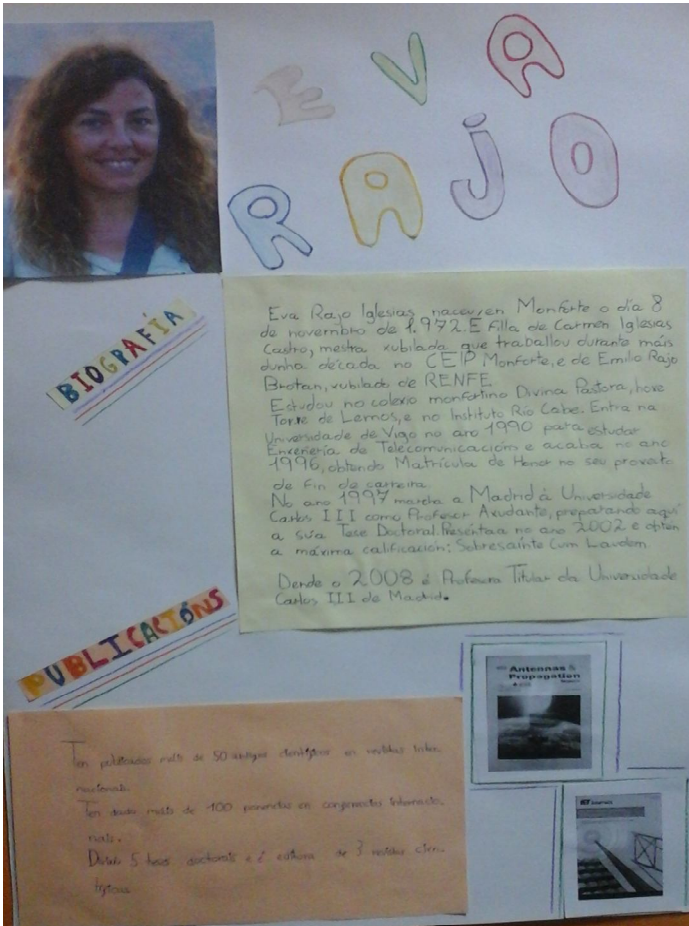 EVA
RAJO
BIOGRAFÍA
Eva Rajo Iglesias naceu en Monforte o día 8
de novembro de 1.972. É filla de Carmen Iglesias
Castro, mestra xubilada que traballou durante máis
dunha década no CEIP Monforte, e de Emilio Rajo
xubilado de RENFE.
Estudou no colexio monfortino Divina Pastora, hoxe
Torre de Lemos, e no Instituto Río Cabe. Entra na
Universidade de Vigo no ano 1990 para estudar
Enxeñería de Telecomunicacións e acaba no ano
1996, obtendo Matrícula de Honor no seu proxecto
de fin de carreira.
No ano 1997 marcha a Madrid á Universidade
Carlos III como Profesor Axudante, preparando aquí
a súa Tese Doctoral. Preséntaa no ano 2002 e obtén
a máxima calificación: Sobresaínte Cum Laudem.
Dende o 2008 é Profesora Titular da Universidade
Carlos III de Madrid.
PUBLICACIÓNS
Ten publicados máis de 50 artigos científicos en revistas inter
nacionais.
Ten dado máis de 100 ponencias en congresos internacio
nais.
Dirixiu 5 teses doctorais e é editora de 3 revistas cien
tíficas
Antennas &
Propagation
IET